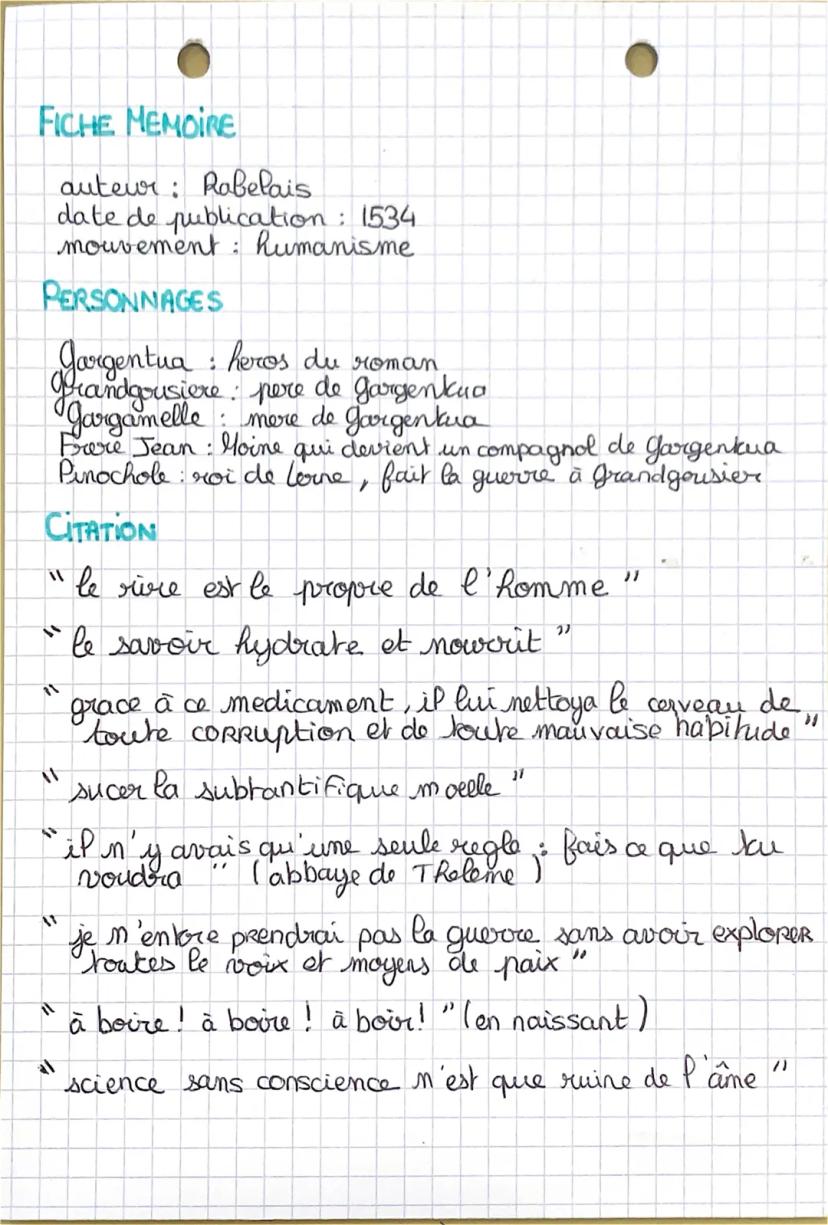 FICHE MEMOIRE
auteur : Rabelais
date de publication : 1534
mouvement : humanisme
PERSONNAGES
Gargentua : heros du roman
Grandgousiere : pere de Gargentua
Gargamelle : mere de Gargentua
Frere Jean : Moine qui devient un compagnol de Gargentua
Pinochole : roi de Lerne, fait la guerre à Grandgousier
CITATION
" le rire est le propre de l'homme "
" le savoir hydrate et nourrit "
" grace à ce medicament, il lui nettoya le cerveau de
toute corruption et de toute mauvaise habitude "
" sucer la subtantifique moelle "
" il n'y avais qu'une seule regle : fais ce que tu
voudra " (abbaye de Theleme)
" je n'entre prendrai pas la guerre sans avoir explorer
toutes le voix et moyens de paix "
" à boire ! à boire ! à boir! " (en naissant)
" science sans conscience n'est que ruine de l'âme "